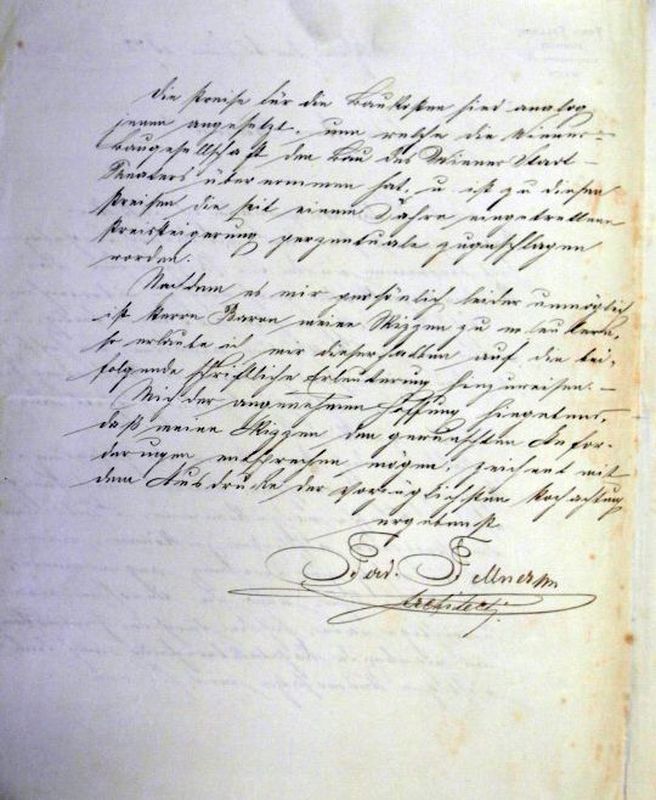 Die Preise für die Baukosten sind analog
jenen angesetzt, um welche die Wiener-
Baugesellschaft den Bau des Wiener Stadt-
Theaters übernommen hat, u. ist zu diesen
Preisen die seit einem Jahre eingetrettene
Preissteigerung perzentuale zugeschlagen
worden.
Nachdem es mir persönlich leider unmöglich
ist Herrn Baron meine Skizzen zu erleutern,
so erlaube ich mir dieserhalben auf die bei-
folgende schriftliche Erleuterung hinzuweisen.-
Mich der angenehmen Hoffnung hingebend,
daß meine Skizzen den gewünschten Anfor-
derungen entsprechen mögen, zeichnet mit
dem Ausdrucke der vorzüglichsten Hochachtung
ergebenst
Ferd. Fellner
Architect